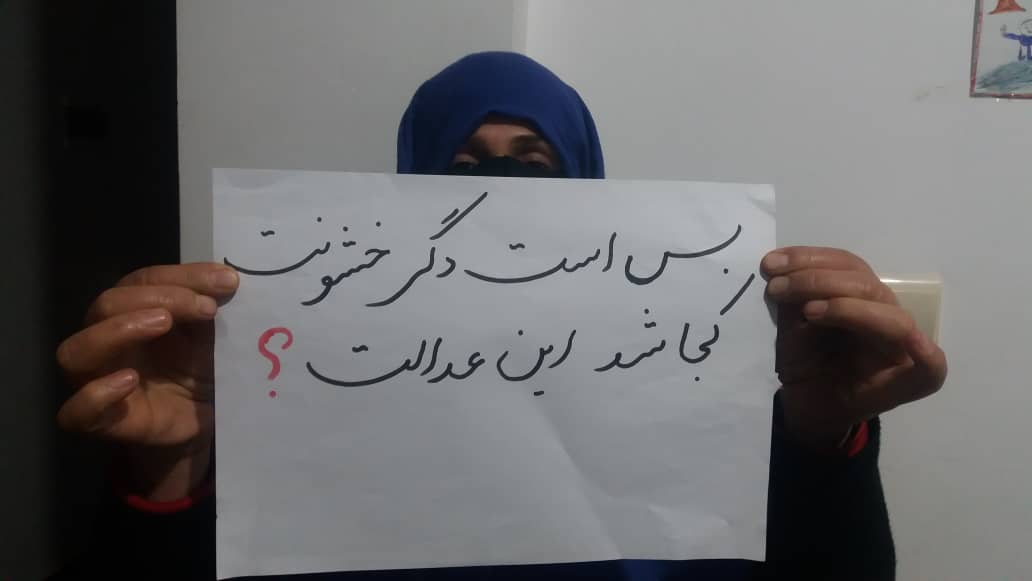 بس است دگر خشونت
کجا شد این عدالت ؟